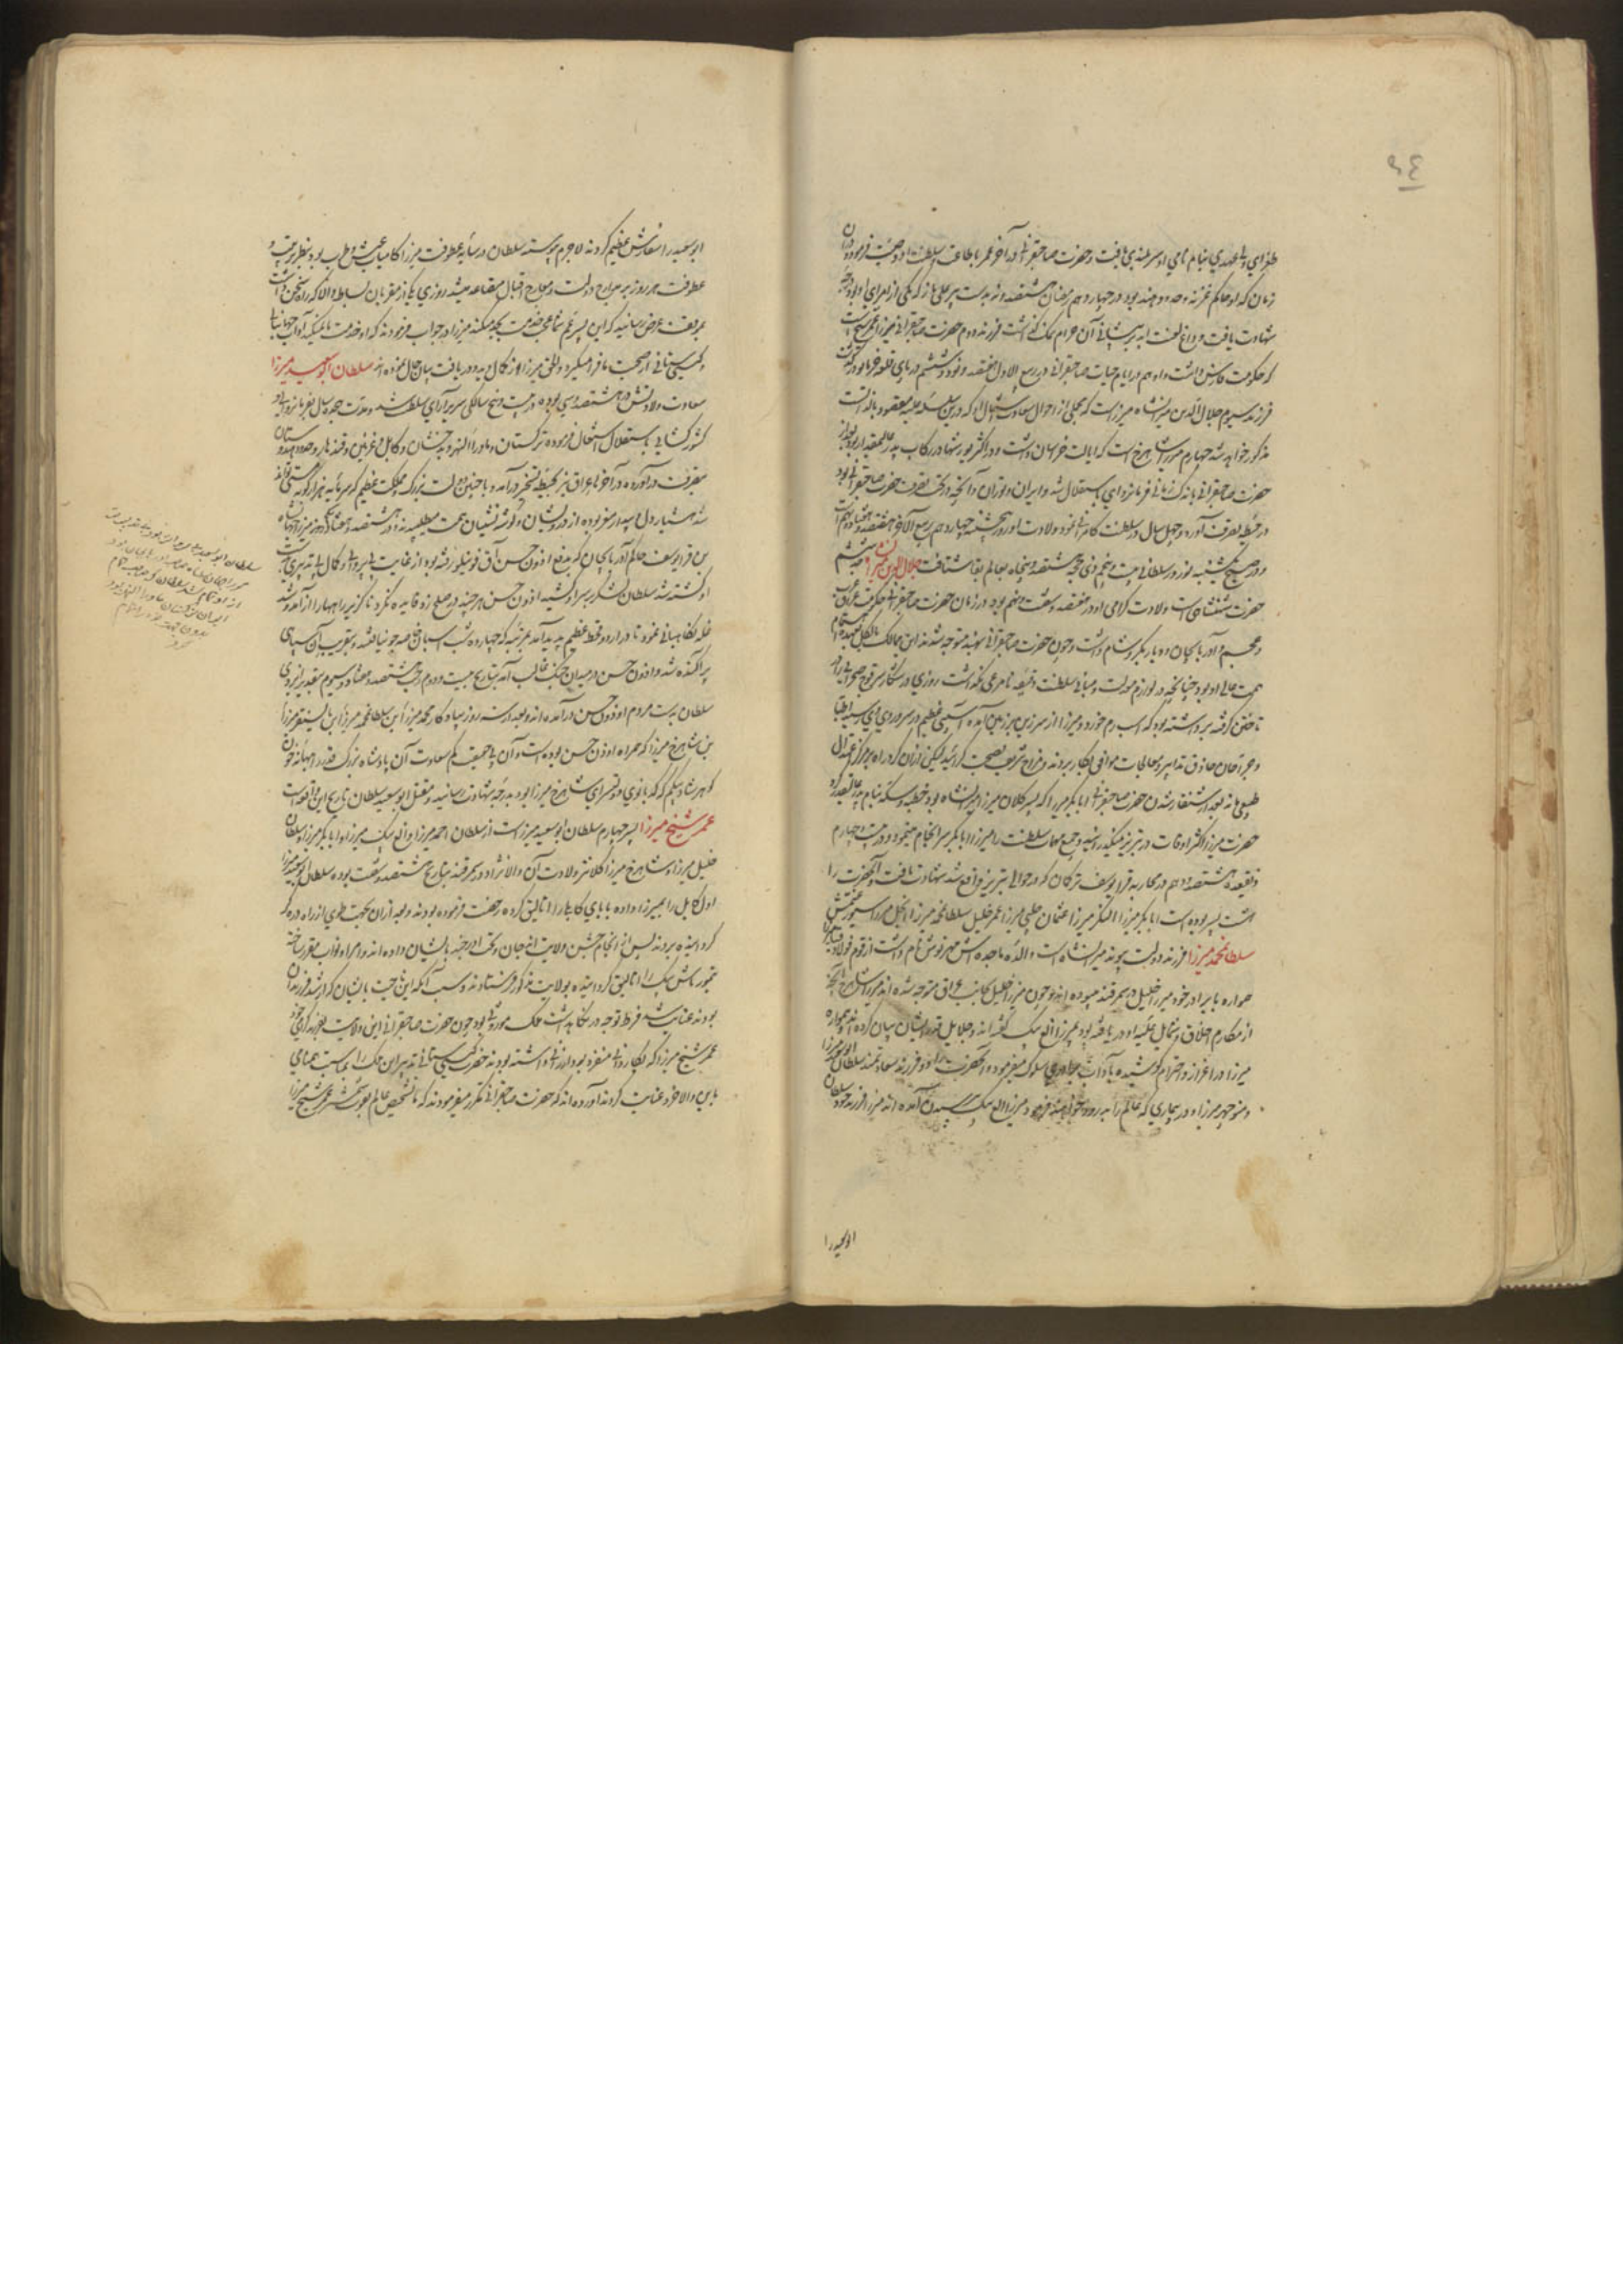 طغرای ولی عهدی بنام نامی او سربلندی یافت و حضرت صاحبقرانی در آخر عمر باطاعت سلطنت او وصیت فرمود و دران
زمان که او حاکم غزنه و حدود هند بود در چهاردهم رمضان هشتصد و نه بدست پیر علی تاز که یکی از امرای او بود درجه
شهادت یافت و داغ لعنت ابد بر پیشانی آن حرام نمک گذاشت فرزند دوم حضرت صاحبقرانی میرزا عمر شیخ است
که حکومت فارس داشت و او هم در ایام حیات صاحبقرانی در ربیع الاول هفتصد و نود و ششم در پای قلعه خرماتو درگذشت
فرزند سیوم جلال الدین میرانشاه میرزاست که مجملی از احوال سعادت اشتمال او که درین سلسله علیه مقصود بالذات است
مذکور خواهد شد چهارم میرزا شاهرخ است که ایالت خراسان داشت و در اکثر یورشها در رکاب پدر عالیمقدار بود بعد از
حضرت صاحبقرانی باندک زمانی فرمانروای باستقلال شد و ایران و توران و آنچه در تحت تصرف حضرت صاحبقرانی بود
در حیطه تصرف آورد و چهل سال در سلطنت کامرانی نمود ولادت او روز پنجشنبه چهاردهم ربیع الآخر هفتصد و هفتاد و نهم است
و در صبح یکشنبه نوروز سلطانی بیست و پنجم ذی حجه هشتصد و پنجاه بعالم بقا شتافت جلال الدین میرانشاه جد ششم
حضرت شهنشاهی است ولادت گرامی او در هفتصد و شصت و نهم بود در زمان حضرت صاحبقرانی حکومت عراق عرب
و عجم و آذربایجان و دیاربکر و شام داشت و چون حضرت صاحبقرانی بهند متوجه شدند این ممالک بالکل بعهده اهتمام
همت عالی او بود چنانچه در لوازم معدلت و مبانی سلطنت دقیقه نامرعی نگذاشت روزی در شکار سر قوچ صحرائی را در
تاختن گرفته برداشته بود که اسب رم خورد و میرزا از سر زین بر زمین آمده آسیبی عظیم در سر و روی او رسید اطبا
و جراحان حاذق تدابیر و معالجات موافق بکار بردند و مزاج شریف بصحت گرائید لیکن از آن گرد راه بر مرکز اعتدال
طبعی ماند بعد از شنقار شدن حضرت صاحبقرانی ابابکر میرزا که پسر کلان میرزا میرانشاه بود خطبه و سکه بنام پدر عالیقدر کرد
حضرت میرزا اکثر اوقات در تبریز میگذرانید و جمیع مهمات سلطنت را میرزا ابابکر سرانجام مینمود و در بیست و چهارم
ذیقعده هشتصد و دهم در محاربه قرا یوسف ترکمان که در حوالی تبریز واقع شد شهادت یافت و آنحضرت را
هشت پسر بوده است ابابکر میرزا النکر میرزا عثمان چلبی میرزا عمر خلیل سلطانمحمد میرزا ایجل میرزا سیورغتمش
سلطانمحمد میرزا فرزند دولت پیوند میرانشاه است والده ماجده اش مهرنوش نام داشت از قوم فولاد قیا
همواره با برادر خود میرزا خلیل در سمرقند میبوده اند و چون میرزا خلیل بجانب عراق متوجه شده اند میرزا شاهرخ آنچه
از مکارم اخلاق و شمایل علیه او دریافته بود بمیرزا الغ بیک گفته اند و جلایل قدر ایشان بیان کرده اند همواره
میرزا در اعزاز و احترام کوشیده بآداب برادری سلوک میفرمود و آنحضرت را دو فرزند سعادتمند سلطان ابوسعید میرزا
و منوچهر میرزا و در بیماری که عالم را بدرود خواهند فرمود میرزا الغ بیک بپرسیدن آمده اند میرزا فرزند خود سلطان
ابوسعید را
ابوسعید را سفارش عظیم کردند لاجرم پیوسته سلطان در سایه عطوفت میرزا کامیاب عیش و طرب بود بنظر تربیت و
عطوفت هر روز بر معارج دولت و مدارج اقبال متصاعد میشد روزی یکی از مقربان بساط والا که راه سخن داشت
بموقف عرض رسانید که این پسر عم شما عجب خدمت بجد میکند میرزا در جواب فرمودند که او خدمت ما نمیکند آداب جهانبانی
و گیتی ستانی از صحبت ما فرا میگیرد و الحق میرزا از کمال دید و دریافت بیان حال نموده اند سلطان ابوسعید میرزا
سعادت ولادتش در هشتصد و سی بوده در بیست و پنج سالگی سریر آرای سلطنت شد و مدت هجده سال بفرمانروائی و
کشورکشائی باستقلال اشتغال فرموده ترکستان و ماوراءالنهر و بدخشان و کابل و غزنین و قندهار و حدود هندوستان
بتصرف درآورده در آخر ها عراق نیز بحیطه تسخیر درآمد و با چنین دولت بزرگ و مملکت عظیم که سرمایه هزار گونه مستی تواند
شد هشیار دل و بیدار مغز بوده از درویشان و گوشه نشینان همت میطلبیدند و در هشتصد و هفتاد و دو میرزا جهانشاه
بن قرا یوسف حاکم آذربایجان که بدفع اوزون حسن آق قوینلو رفته بود از غایت بی پروائی و کمال بی تدبیری بدست
او کشته شد سلطان لشکر بر سر او کشید اوزون حسن هر چند در صلح زد فایده نکرد ناگزیر راهها را از آمد و شد
غله نگاهبانی نمود تا در اردو قحط عظیم پدید آمد بمرتبه که چهارده شب اسپان خاصه جو نیافتند و بتقریب آن سپاهی
پراکنده شد و اوزون حسن در میدان جنگ غالب آمد بتاریخ بیست و دوم رجب هشتصد و هفتاد و سیوم بتقدیر ایزدی
سلطان بدست مردم اوزون حسن درآمده اند و بعد از سه روز بیادگار محمد میرزا بن سلطانمحمد میرزا بن بایسنقر میرزا
بن شاهرخ میرزا که همراه اوزون حسن بوده است و آن بی حقیقت کم سعادت آن پادشاه بزرگ قدر را ببهانه خون
گوهرشاد بیگم که کدبانوی دولتسرای شاهرخ میرزا بود بدرجه شهادت رسانید و مقتل ابوسعید سلطان تاریخ این واقعه است
عمر شیخ میرزا پسر چهارم سلطان ابوسعید میرزاست از سلطان احمد میرزا و الغ بیک میرزا و ابابکر میرزا و سلطان
خلیل میرزا و شاهرخ میرزا کلانتر ولادت آن والانژاد در سمرقند بتاریخ هشتصد و شصت بوده سلطان ابوسعید میرزا
اول کابل را بمیرزا داده بابای کابلی را اتالیق کرده رخصت فرموده بودند و بعد از آن بجهت طوی از راه دره گز
گردانیده بردند پس از انجام جشن ولایت اندجان و تخت اوزجند بایشان داده اند و امرا و نواب مقرر ساخته
تیمورتاش بیک را اتالیق گردانیده بولایت مذکور فرستادند و سبب آنکه این ناحیت بایشان که ارشد فرزندان
بودند عنایت شد فرط توجه در نگاهداشت ملک موروثی بود چون حضرت صاحبقرانی این ولایت بفرزند گرامی خود
عمر شیخ میرزا که بکاردانی منفرد بود ارزانی داشته بودند حضرت گیتی ستانی تدبیر این ملک را بمناسبت همنامی
باین والاخرد عنایت کردند آورده اند که حضرت صاحبقرانی مکرر میفرمودند که ما تسخیر عالم بقوت شمشیر عمر شیخ میرزا